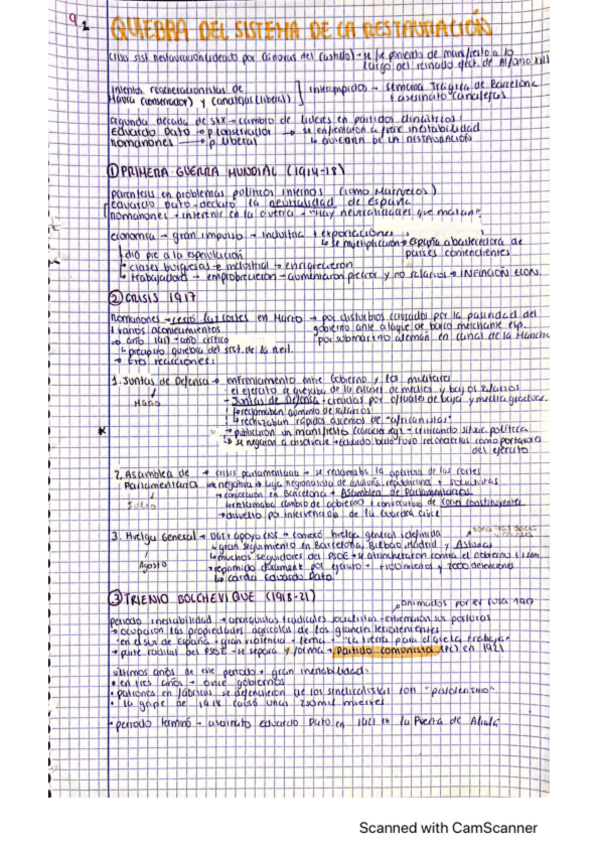 9 1 QUIEBRA DEL SISTEMA DE LA RESTAURACIÓN
crisis sist. restauración (ideado por Cánovas del Castillo) → se fue poniendo de manifiesto a lo
largo del reinado efect. de Alfonso XIII
intentos regeneracionistas de
Maura (conservador) y Canalejas (liberal)
interrumpidos → Semana Trágica de Barcelona
+ asesinato Canalejas
segunda década de s.XX → cambio de líderes en partidos dinásticos:
Eduardo Dato → p. conservador → se enfrentaron a inestabilidad
Romanones → p. liberal → QUIEBRA DE LA RESTAURACIÓN
① PRIMERA GUERRA MUNDIAL (1914-18)
paréntesis en problemas políticos internos (como Marruecos)
Eduardo Dato → declaró la neutralidad de España
Romanones → intervenir en la guerra → "Hay neutralidades que matan".
economía → gran impulso → industria + exportaciones
se multiplicaron → España abastecedora de
países contendientes
dio pie a la especulación
clases burguesas e industrial → enriquecieron
trabajadores → empobrecieron → aumentaron precios y no salarios → INFLACIÓN ECON.
② CRISIS 1917
Romanones → cerró las cortes en Marzo → por disturbios causados por la pasividad del
+ varios acontecimientos gobierno ante ataque de barco mercante esp.
→ año 1917 → año crítico por submarino alemán en Canal de la Mancha
precipitó quiebra del sist. de la
→ tres reacciones:
1. Juntas de Defensa → enfrentamiento entre Gobierno y los militares
Mayo
el ejército se quejaba de la escasez de medios y bajos salarios
- Juntas de Defensa → creadas por oficiales de baja y media graduac.
reclamaban aumento de salarios
rechazaban rápidos ascensos de "africanistas"
publicaron un manifiesto criticando situac. política
se negaron a disolverse → Eduardo Dato tuvo reconocerlas como portavoz
del ejército
2. Asamblea de → crisis parlamentaria → se reclamaba la apertura de las cortes
Parlamentarios → negativa → Liga regionalista de Cataluña, republicanos + socialistas
Julio
→ convocaron en Barcelona → Asamblea de Parlamentarios
reclamaba cambio de gobierno + convocatoria de cortes constituyentes
→ disuelto por intervención de la Guardia Civil
3. Huelga General → UGT + apoyo CNT → convocó huelga general indefinida
Agosto
gran seguimiento en Barcelona, Bilbao, Madrid y Asturias
muchos seguidores del PSOE → se atrincheraron contra el gobierno
reprimido por ejército → +100 muertos y 2000 detenciones
caída Eduardo Dato
③ TRIENIO BOLCHEVIQUE (1918-21)
animados por rev. rusa 1917
periodo inestabilidad → radicales socialistas → extreman sus posturas
→ ocupación las propiedades agrícolas de los grandes terratenientes
→ en el sur de España → gran violencia → lema → "la tierra para el que la trabaja"
→ parte radical del PSOE → se separa y forma → Partido comunista en 1921
últimos años de este periodo → gran inestabilidad:
• en tres años → once gobiernos
• patronos en fábricas se defendieron de los sindicalistas con "pistolerismo"
• la gripe de 1918 causó unas 250mil muertes
→ periodo terminó → asesinato Eduardo Dato en 1921 en la Puerta de Alcalá
Scanned with CamScanner